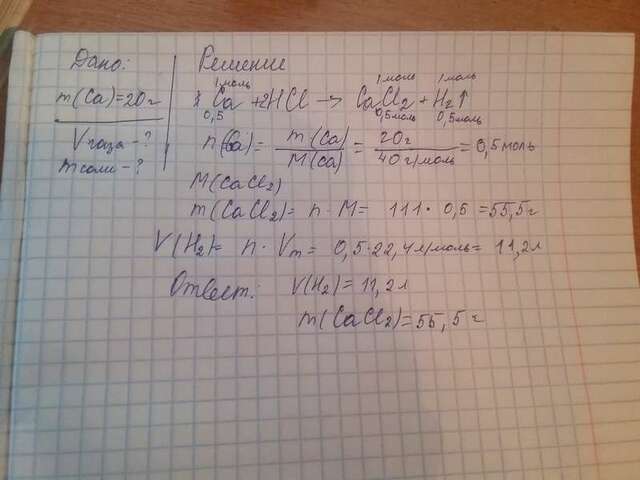 Дано:
m(Ca)=20г
V газа-?
m соли-?
Решение
1моль 1моль 1моль
Ca +2HCl → CaCl2 + H2↑
0,5 0,5моль 0,5моль
n(Ca)= m(Ca)/M(Ca) = 20г/40г/моль = 0,5моль
M(CaCl2)
m(CaCl2)= n·M= 111·0,5=55,5г
V(H2)= n·Vm= 0,5·22,4л/моль= 11,2л
Ответ: V(H2)=11,2л
m(CaCl2)=55,5г